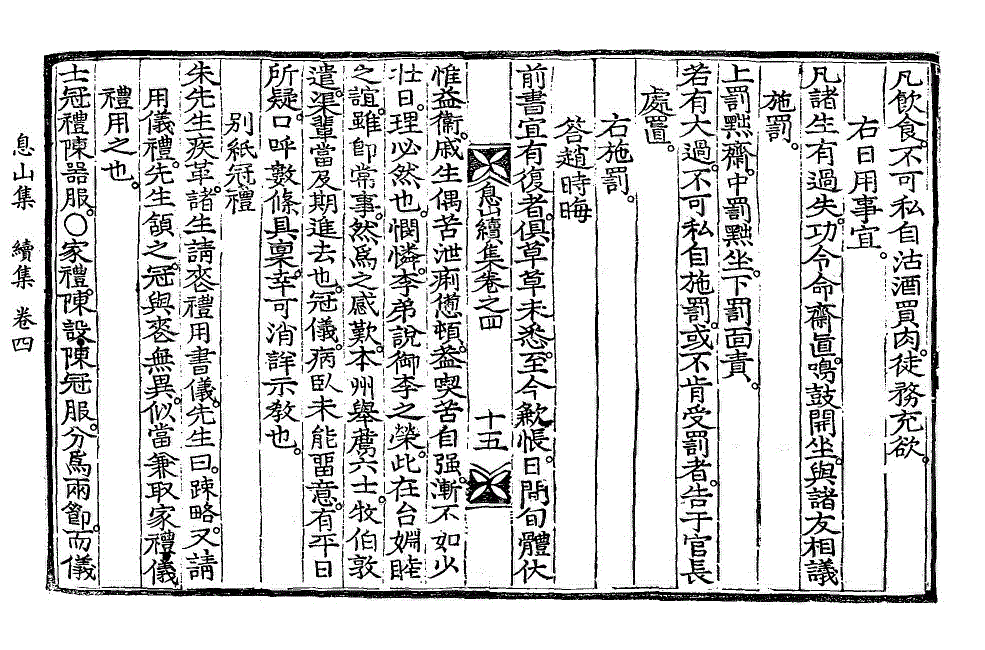 凡飲食。不可私自沽酒買肉。徒務充欲。
右日用事宜。
凡諸生有過失。功令命齋直。鳴鼓開坐。與諸友相議
施罰。
上罰黜齋。中罰黜坐。下罰面責。
若有大過。不可私自施罰。或不肯受罰者。告于官長
處置。
右施罰。
答趙時晦
前書宜有復者。俱草草未悉。至今歉悵。日間旬體伏
息山續集卷之四 十五
惟益衛。戚生偶苦泄痢。憊頓。益喫苦自强。漸不如少
壯日。理必然也。憫憐。李弟說御李之榮。此在台婣睦
之誼。雖卽常事。然爲之感歎。本州舉薦六士。牧伯敦
遣。渠輩當及期進去也。冠儀。病臥未能留意。有平日
所疑。口呼數條具稟。幸可消詳示敎也。
別紙冠禮
朱先生疾革。諸生請喪禮用書儀。先生曰。疎略。又請
用儀禮。先生頷之。冠與喪無異。似當兼取家禮儀
禮用之也。
士冠禮陳器服。○家禮。陳設陳冠服。分爲兩節。而儀
息山集 續集 卷四